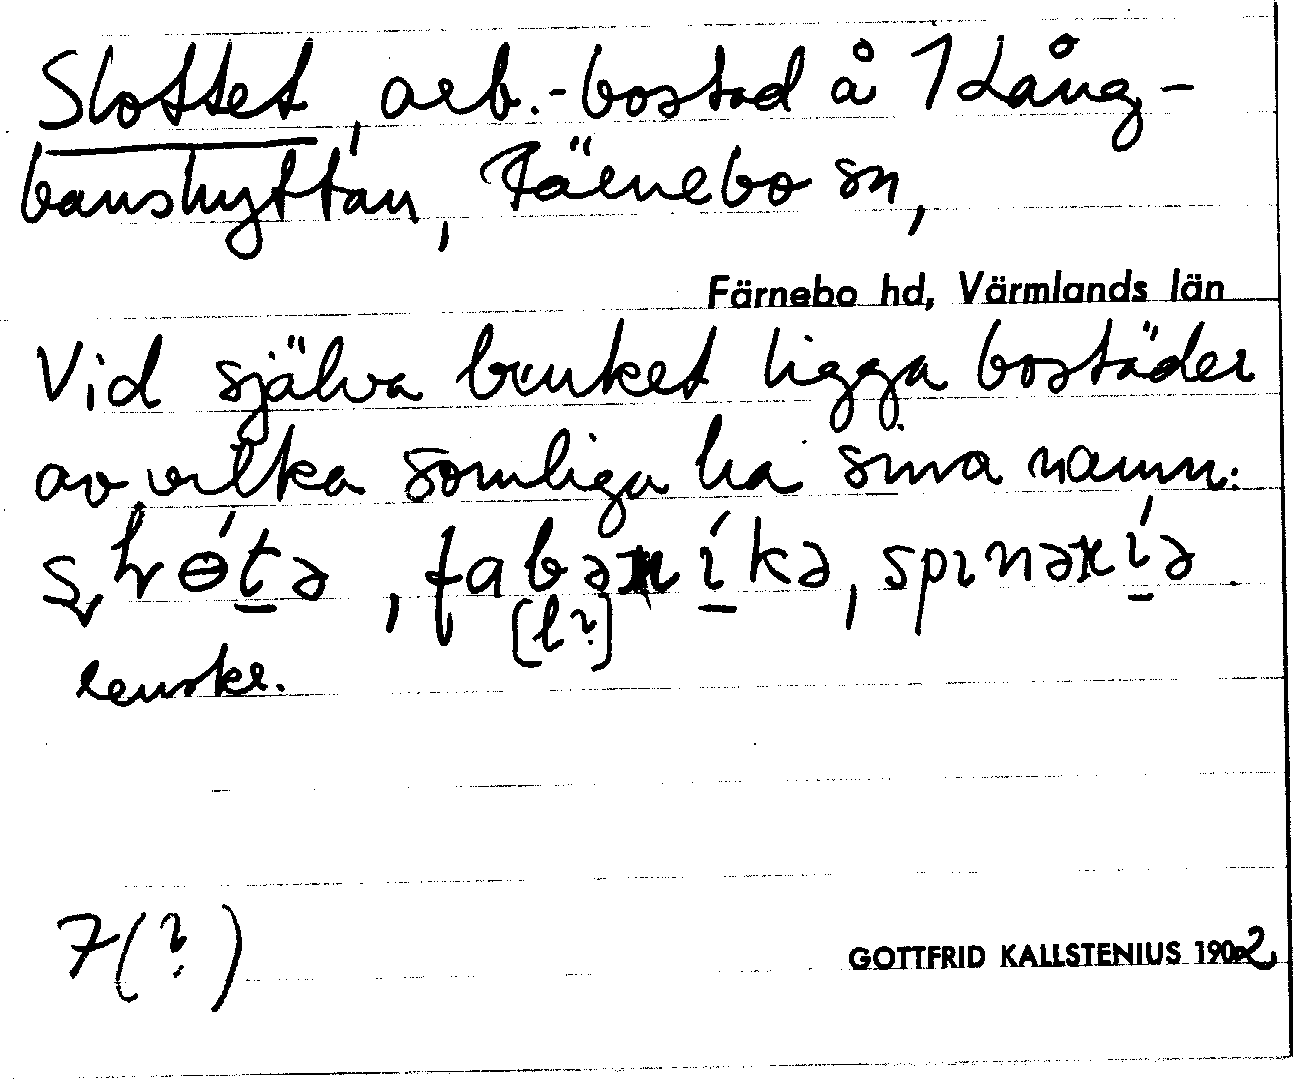 Slottet, arb.-bostad å 1 Lång-
banshyttan, Färnebo sn,
Färnebo hd, Värmlands län
Vid själva bruket ligga bostäder
av vilka somliga ha sina namn:
fabənikə, spinəniə.
[l?]
7(?)
GOTTFRID KALLSTENIUS 1902